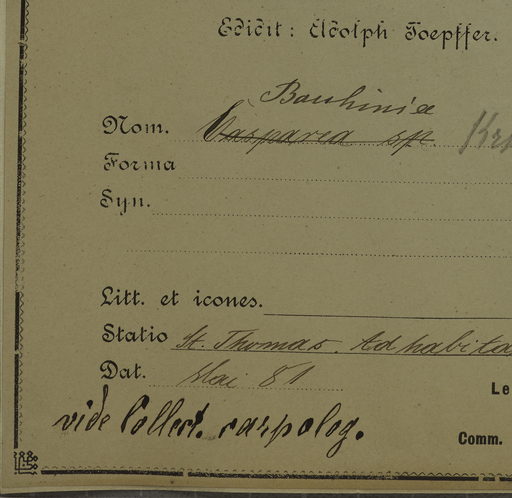 Edidit: Adolph Toepffer.
Bauhinia
Nom. Casparea sp.
Forma
Syn.
Litt. et icones.
Statio St. Thomas. Ad habita
Dat. Mai 81
Le
vide Collect. carpolog.
Comm.